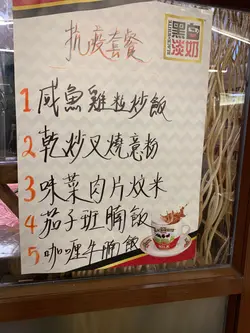 抗疫套餐
黑白
淡奶
1 咸魚雞粒炒飯
2 乾炒叉燒意粉
3 味菜肉片炆米
4 茄子班腩飯
5 咖喱牛腩飯